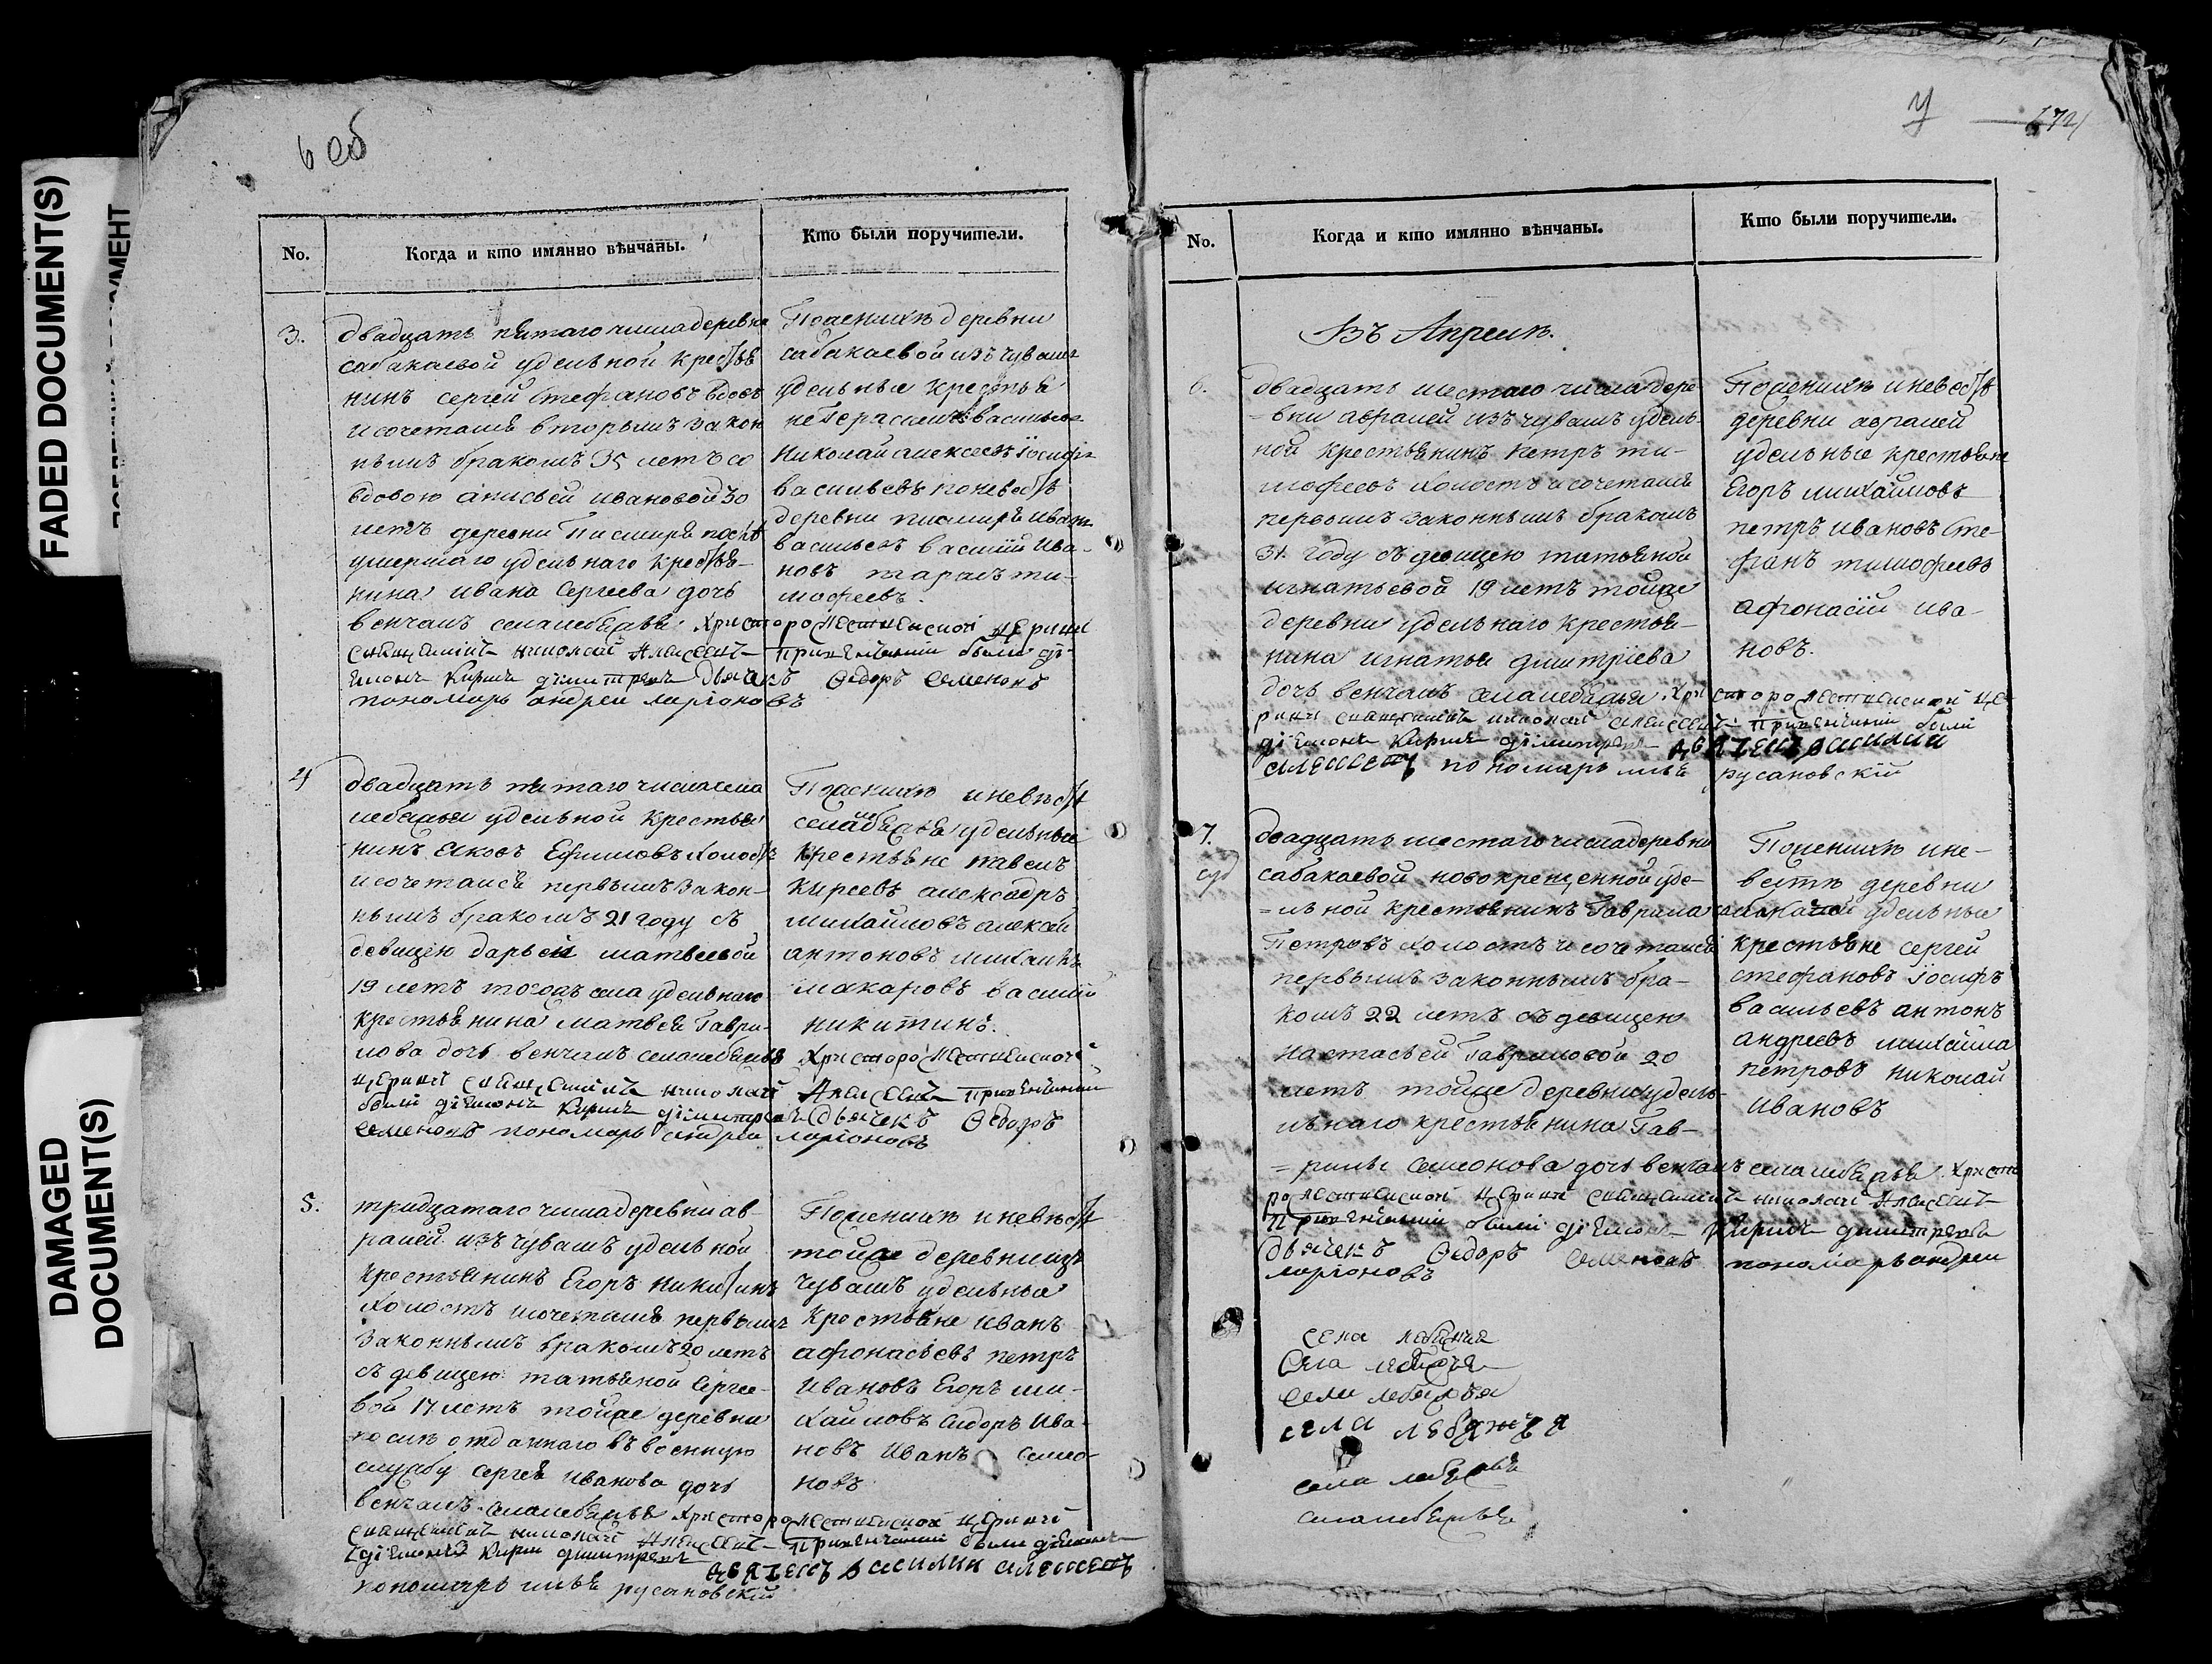 FADED DOCUMENT(S)
DAMAGED
DOCUMENT(S)
6 об
No.
Когда и кто имянно вѣнчаны.
Кто были поручители.
3.
двадцать пятаго числа деревни
сабакаевой удельной крестья
нинъ сергей Стефановъ вдовъ
и сочетался вторымъ закон
нымъ бракомъ 35 летъ со
вдовою анисьей ивановой 30
летъ деревни Писмиря после
умершаго удельнаго крестья-
нина ивана Сергеева дочь
венчалъ села лебяжья Христорождественской церкви
священникъ николай Алексеевъ привенчании были дi
яконъ Кирилъ димитревъ дьячекъ Ѳедоръ Семеновъ
пономарь андреи ларiоновъ
По женихе деревни
сабакаевой изъ чувашъ
удельные крестья
не Герасимъ васильевъ
николай алексеевъ Iосифъ
васильевъ по невесте
деревни писмиря Иванъ
васильевъ василiй Ива-
новъ тарасъ ти-
мофеевъ.
4
двадцать пятаго числа села
лебяжья удельной крестья
нинъ яковъ Ефимовъ холостъ
и сочетался первымъ закон-
нымъ бракомъ 21 году съ
девицею дарьей матвеевой
19 летъ тогожъ села удельнаго
крестьянина матвея Гаври-
лова дочь венчалъ села лебяжья Христорождественской
церкви священникъ николай Алексеевъ привенчании
были дiяконъ Кирилъ димитревъ дьячекъ Ѳедоръ
семеновъ пономарь андреи ларiоновъ
По женихе и невесте
села лебяжья удельные
крестьяне павелъ
киреевъ александръ
михайловъ алексей
антоновъ михаилъ
макаровъ василiй
никитинъ.
5.
тридцатаго числа деревни ав-
ралей изъ чувашъ удельной
крестьянинъ Егоръ никитинъ
холостъ и сочетался первымъ
законнымъ бракомъ 20 летъ
съ девицею татьяной Сергее-
вой 17 летъ тойже деревни
после отданнаго въ военную
службу сергея иванова дочь
венчалъ села лебяжья Христорождественской церкви
священникъ николай Алексеевъ привенчании были дiяконъ
дiяконъ Кирил димитревъ дьячекъ василий алексеевъ
пономарь илья русановскiй
По женихе и невесте
тойже деревни изъ
чувашъ удельные
крестьяне иванъ
афонасьевъ петръ
ивановъ Егоръ ми-
хайловъ сидоръ ива-
новъ иванъ семио-
новъ
У
1721
No.
Когда и кто имянно вѣнчаны.
Кто были поручители.
Въ Апреле.
6.
двадцать шестаго числа дере
=вни авралей изъ чувашъ удель-
ной крестьянинъ петръ ти-
мофеевъ холостъ и сочетался
первымъ законнымъ бракомъ
31 году съ девицею татьяной
игнатьевой 19 летъ тойже
деревни удельнаго крестья-
нина игнатья димитрiева
дочь венчалъ села лебяжья Христорождественской це
ркви священникъ николай алексеевъ привенчании были
дiяконъ Кирилъ димитревъ дьячекъ василий
алексеевъ пономарь илья русановскiй
По женихе и невесте
деревни авралей
удельные крестьяне
Егоръ михайловъ
петръ ивановъ Сте-
фанъ тимофеевъ
афонасiй ива-
новъ.
7.
двадцать шестаго числа деревни
сабакаевой новокрещенной уде-
=льной крестьянинъ Гаврила
Петровъ холостъ и сочетался
первымъ законнымъ бра-
комъ 22 летъ съ девицею
настасьей Гавриловой 20
летъ тойже деревни удель-
нѣаго крестьянина Гав-
=рилы семионова дочь венчалъ села лебяжья Христо
рождественской церкви священникъ николай Алексеевъ
привенчании были дiяконъ Кирилъ димитревъ
дьячекъ Ѳедоръ Семеновъ пономарь андреи
ларiоновъ
По женихе и не-
весте деревни
сабакаевой удельные
крестьяне сергей
стефановъ Iосифъ
васильевъ антонъ
андреевъ михайла
петровъ николай
ивановъ
села лебяжья
Села лебяжья
села лебяжья
села лебяжья
села лебяжья
села лебяжья